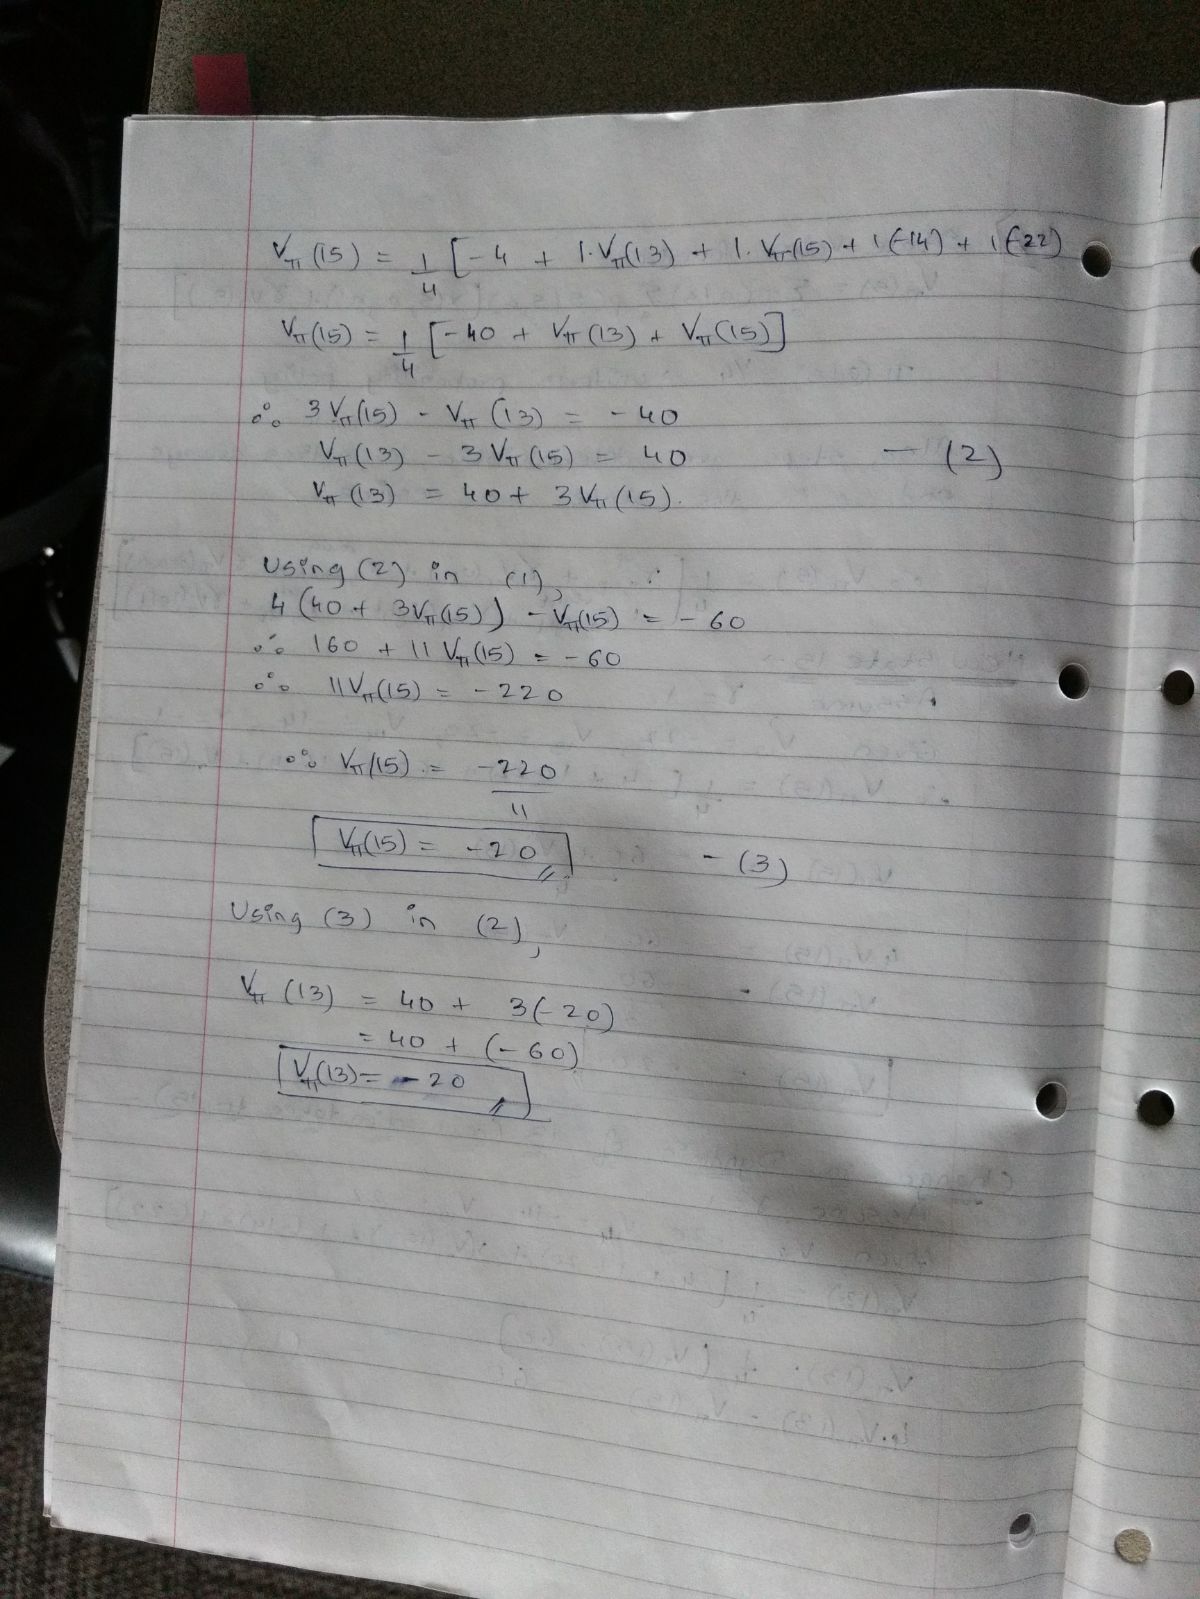 Vπ(15) = 1/4 [-4 + 1·Vπ(13) + 1·Vπ(15) + 1(-14) + 1(-22)
Vπ(15) = 1/4 [-40 + Vπ(13) + Vπ(15)]
∴ 3Vπ(15) - Vπ(13) = -40
Vπ(13) - 3Vπ(15) = 40 — (2)
Vπ(13) = 40 + 3Vπ(15).
Using (2) in (1),
4(40 + 3Vπ(15)) - Vπ(15) = -60
∴ 160 + 11Vπ(15) = -60
∴ 11Vπ(15) = -220
∴ Vπ(15) = -220/11
Vπ(15) = -20 - (3)
Using (3) in (2),
Vπ(13) = 40 + 3(-20)
= 40 + (-60)
Vπ(13) = -20